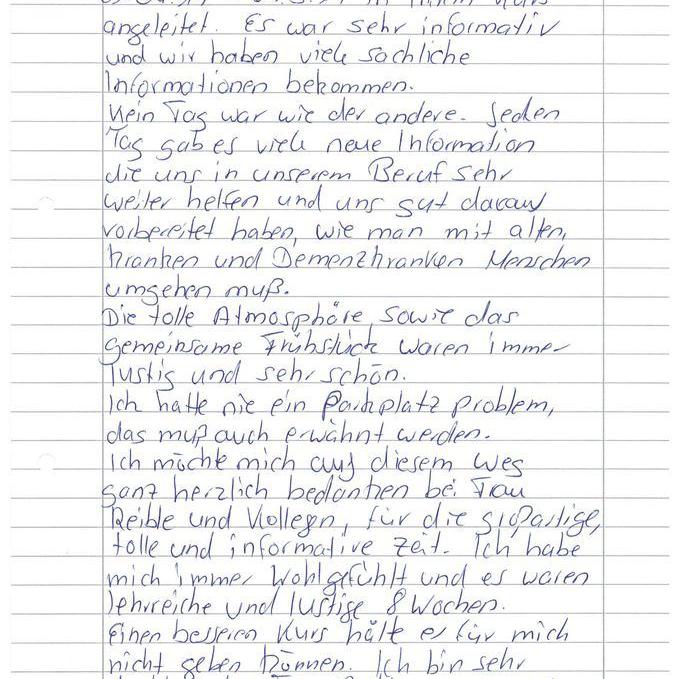 angeleitet. Es war sehr informativ
und wir haben viele sachliche
Informationen bekommen.
Kein Tag war wie der andere. Jeden
Tag gab es viele neue Information
die uns in unserem Beruf sehr
weiter helfen und uns gut darauf
vorbereitet haben, wie man mit alten,
kranken und Demenzkranken Menschen
umgehen muß.
Die tolle Atmosphäre sowie das
gemeinsame Frühstück waren immer
lustig und sehr schön.
Ich hatte nie ein Parkplatz problem,
das muß auch erwähnt werden.
Ich möchte mich auf diesem Weg
ganz herzlich bedanken bei Frau
Reible und Kollegn, für die großartige,
tolle und informative Zeit. Ich habe
mich immer Wohlgefühlt und es waren
lehrreiche und lustige 8 Wochen.
Einen besseren Kurs hätte es für mich
nicht geben können. Ich bin sehr